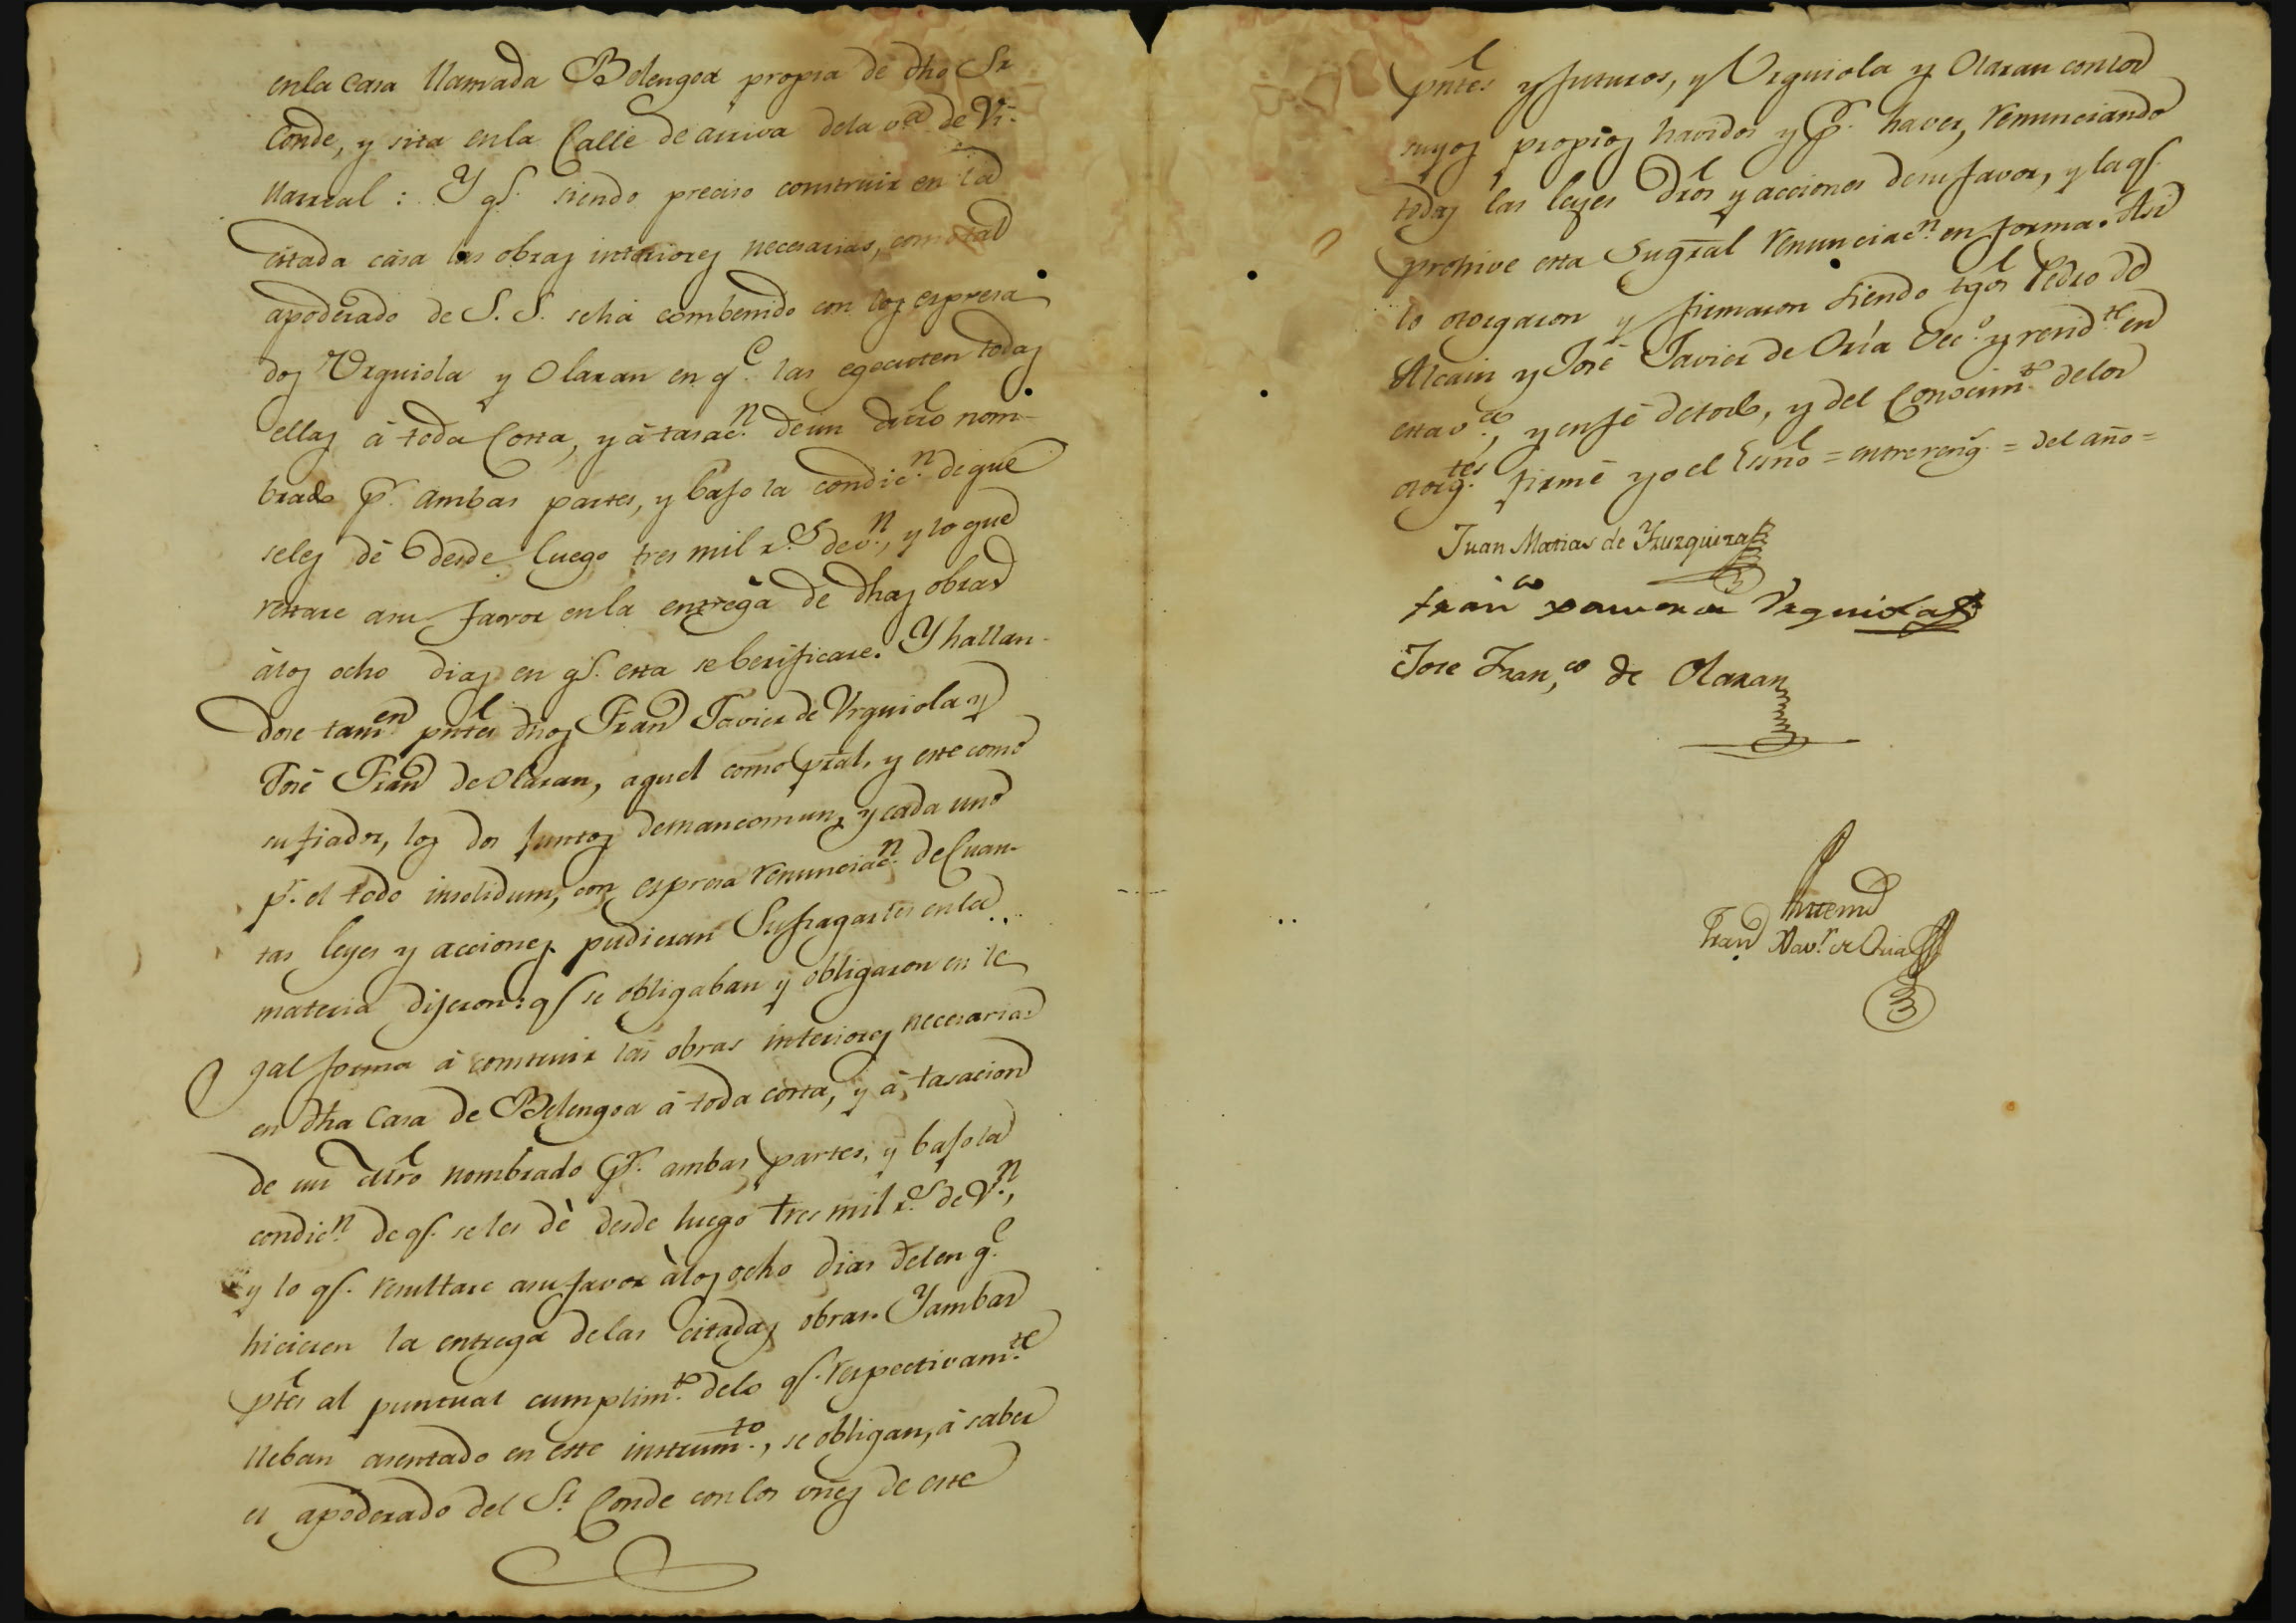 en la casa llamada Belengoa propia de dho Sr
Conde, y sita en la Calle de arriva de la va de Vi-
llarreal: Y q.e siendo preciso construir en la
citada casa las obras interiores necesarias, como tal
apoderado de S. S. se há combenido con los espresa
dos Urquiola y Olaran en q.e las egecuten todas
ellas á toda Costa, y á tasac.n de un Mro nom-
brado p.r ambas partes, y bajo la condic.n de que
se les dé desde luego tres mil r.s de v.n, y lo que
restare a su favor en la entrega de dhas obras
á los ocho dias en q.e esta se berificare. Y hallan-
dose tamb.en pntes dhos Fran.co Javier de Urquiola y
José Fran.co de Olaran, aquel como pral, y este como
su fiador, los dos juntos de mancomun, y cada uno
p.r el todo insolidum, con espresa renunciac.n de Cuan-
tas leyes y acciones pudieran Sufragarles en la
materia dijeron: q.e se obligaban y obligaron en le
gal forma á construir las obras interiores necesarias
en dha Casa de Belengoa á toda costa, y á tasacion
de un Mro nombrado p.r ambas partes, y bajo la
condic.n de q.e se les dè desde luego tres mil r.s de V.n,
y lo q.e resultare a su favor à los ocho dias del en q.e
hicieren la entrega de las citadas obras. Y ambas
ptes al puntual cumplim.to de lo q.e respectivam.te
lleban asentado en este instrum.to, se obligan, á saber
el apoderado del Sr Conde con los vnes de este
pntes y futuros, y Urquiola y Olaran con los
suyos propios havidos y p.r haver, renunciando
todas las leyes dros y acciones de su favor, y la q.e
prohive esta Su gral renunciac.n en forma. Asi
lo otorgaron y firmaron siendo tgos Pedro de
Alcain y José Javier de Oria Vec.s y resid.te en
esta v.a, y en fé de todo, y del Conocim.to de los
otorg.tes firmé yo el Esno = entrereng.s = del año =
Juan Matias de Yrurquiza
fran.co xavier de Urquiola
Jose Fran.co de Olaran
Antemi
Fran.co Xav.r de Oria